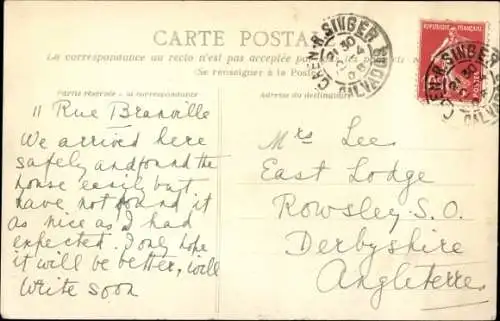 CARTE POSTALE
La correspondance au recto n'est pas acceptée par tous les pays
(Se renseigner à la Poste)
Partie réservée à la correspondance
Adresse du destinataire
RÉPUBLIQUE FRANÇAISE
CAEN-R. SINGER
30
CALVADOS
CAEN-R. SINGER
30
CALVADOS
11 Rue Branville
We arrived here
safely and found the
house easily but
have not found it
as nice as I had
expected. I only hope
it will be better, will
write soon
Mrs Lee
East Lodge
Rowsley S.O.
Derbyshire
Angleterre